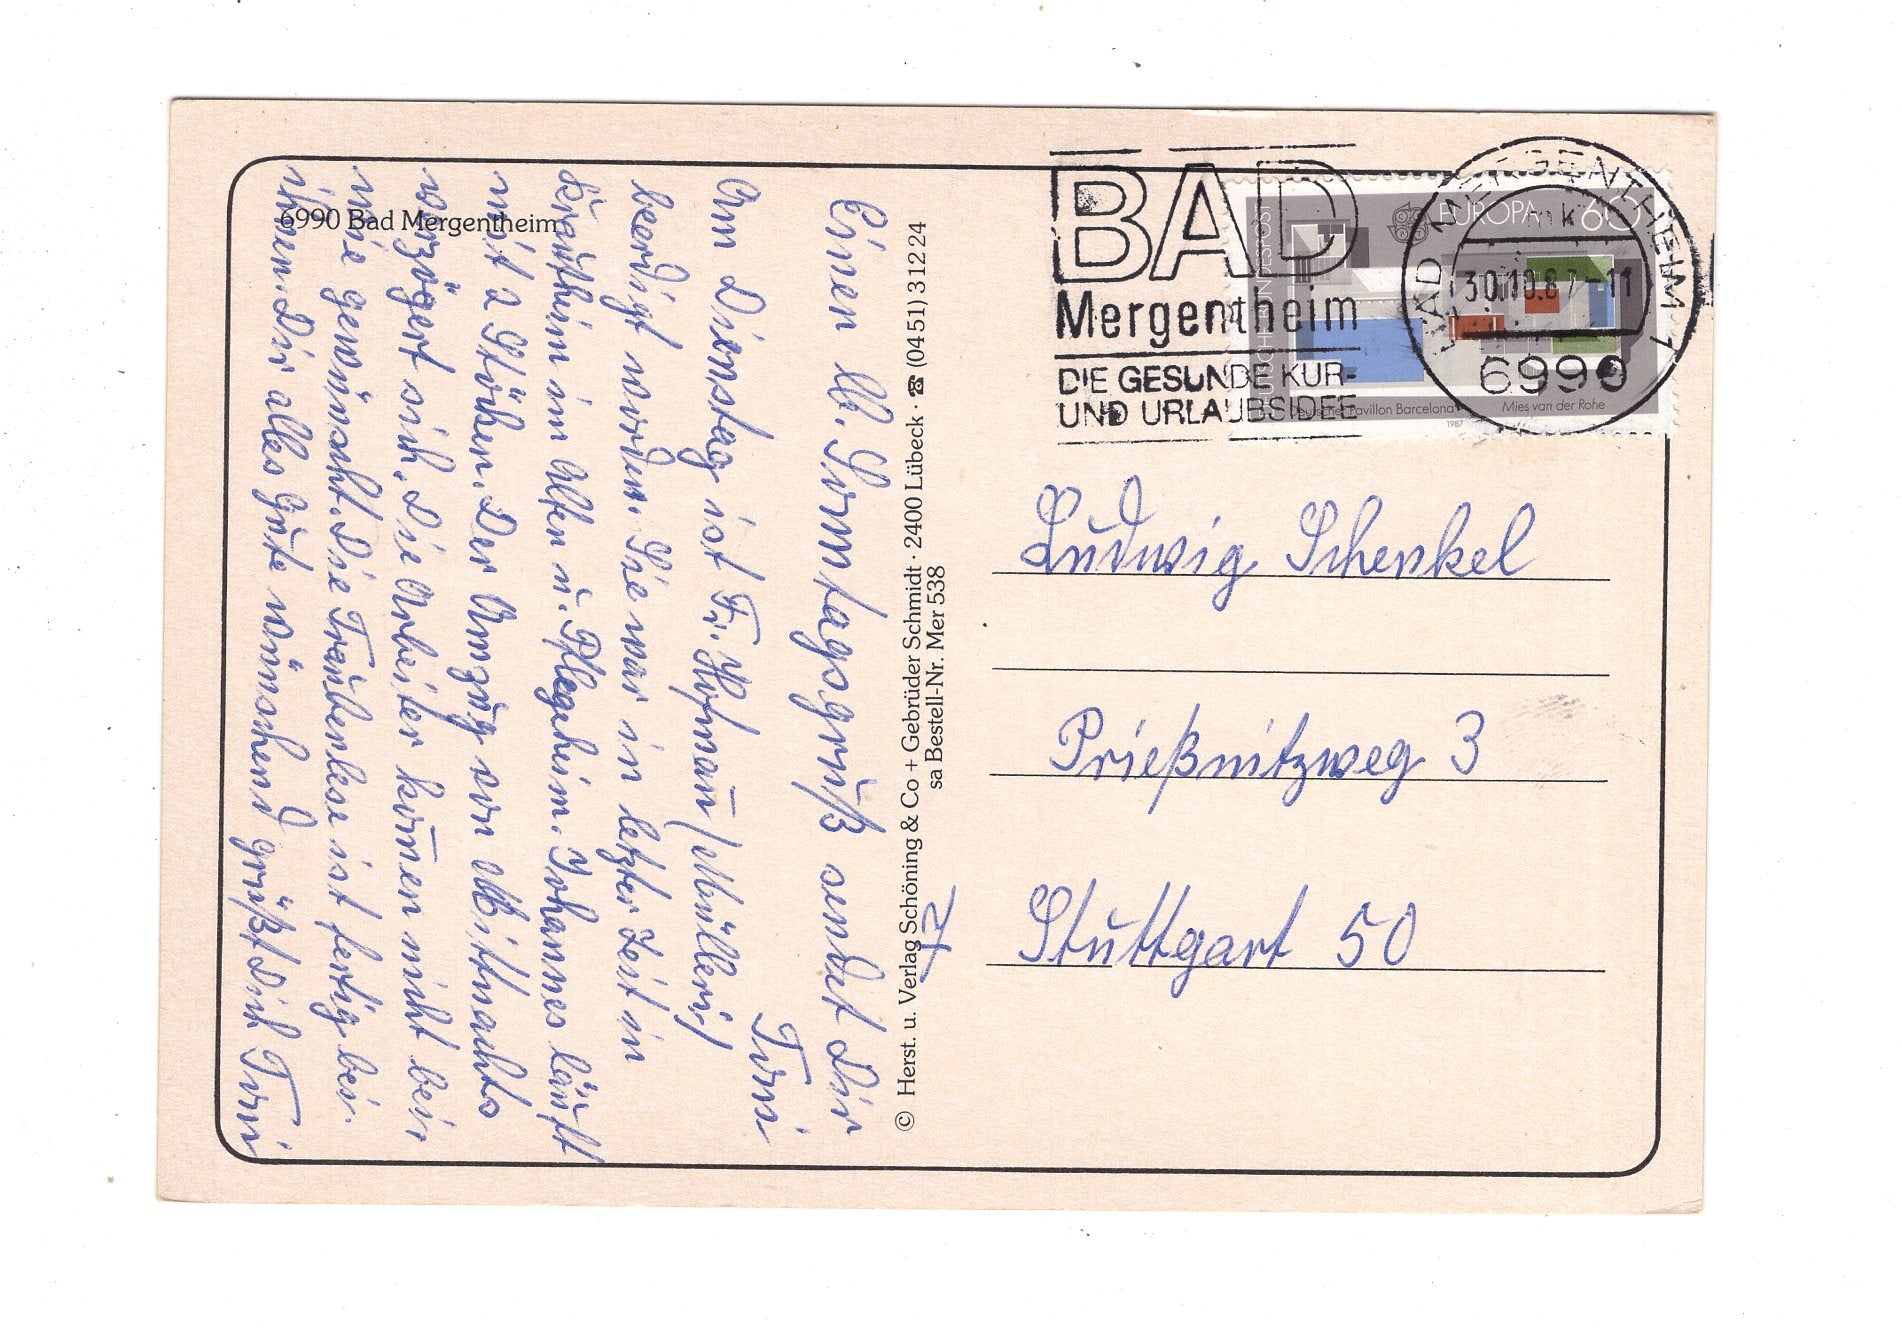 6990 Bad Mergentheim
Einen lb. Sonntagsgruß sendet Dir
Toni
Am Dienstag ist Fr. Hofmañ (Müllerin)
beerdigt worden. Sie war in letzter Zeit in
Krautheim im Alten u. Pflegeheim. Johannes läuft
mit 2 Stöcken. Der Anzug von
verzögert sich, die Arbeiter kom̄en nicht bei
wie gewünscht. Die Traubenlese ist fertig bei
ihnen. Dir alles Gute wünschend grüßt Dich Toni
© Herst. u. Verlag Schöning & Co + Gebrüder Schmidt · 2400 Lübeck · ☎ (04 51) 3 12 24
sa Bestell-Nr. Mer 538
BAD
Mergentheim
DIE GESUNDE KUR-
UND URLAUBSIDEE
DEUTSCHE BUNDESPOST
EUROPA 60
Deutscher Pavillon Barcelona Mies van der Rohe
1987
BAD MERGENTHEIM 1
mk
30.10.87-11
6990
Ludwig Schenkel
Prießnitzweg 3
Stuttgart 50